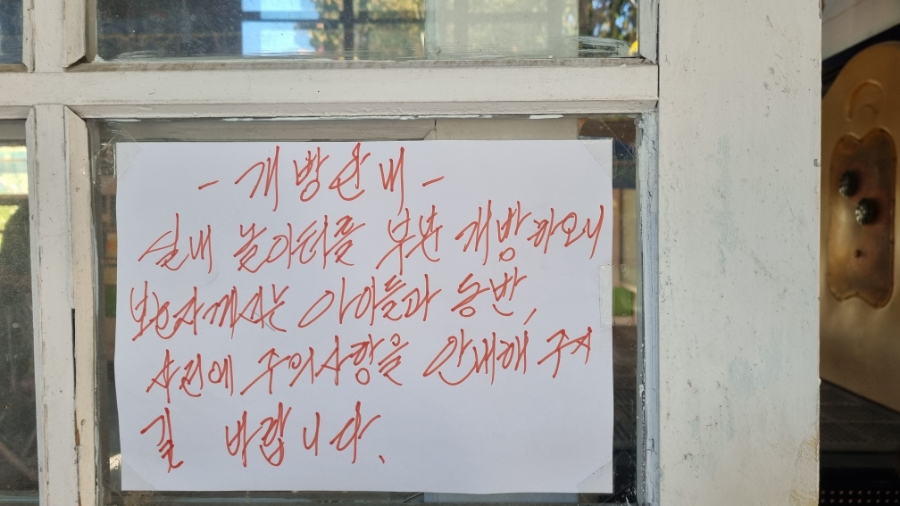 - 개방안내 -
실내 놀이터를 부분 개방하오니
보호자께서는 아이들과 동반,
사전에 주의사항을 안내해 주시
길 바랍니다.